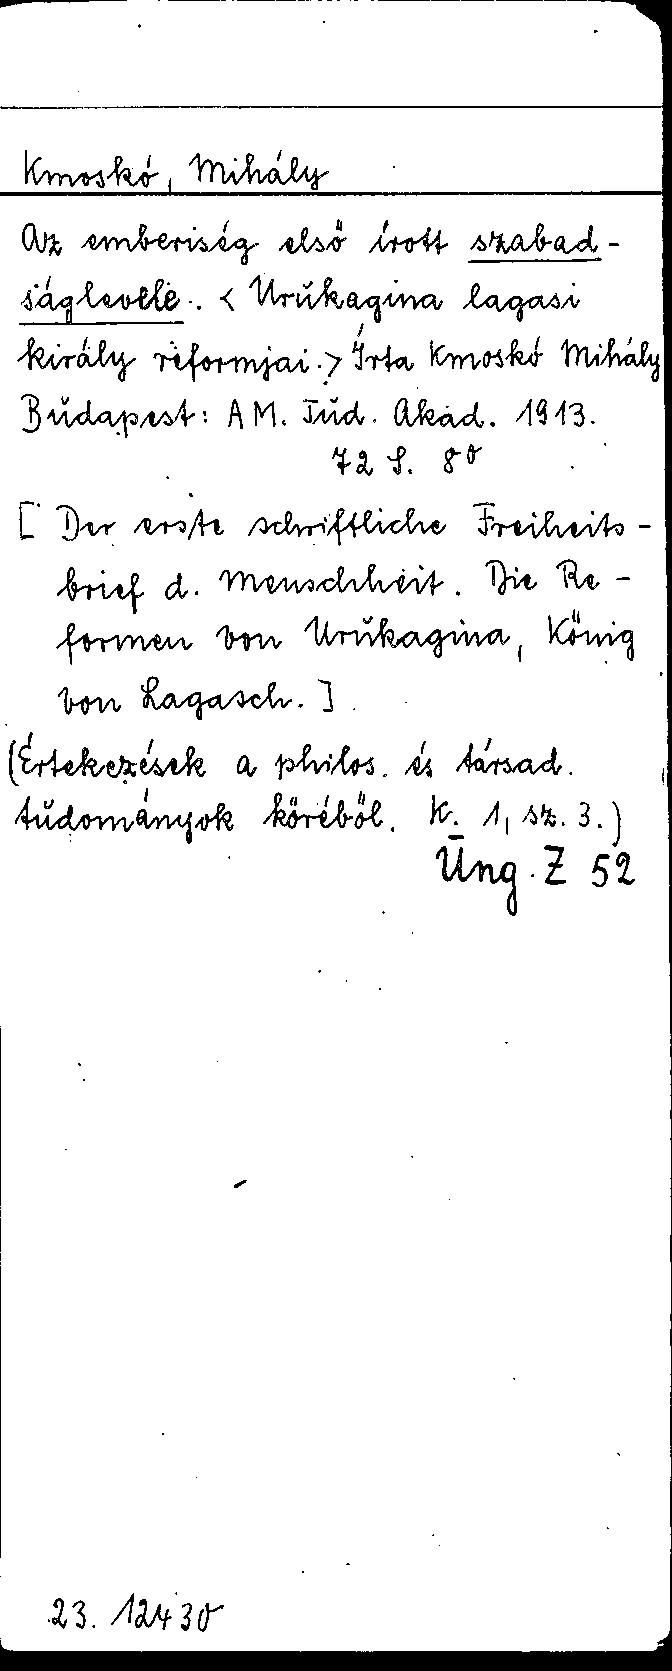 Kmoskó, Mihály
Az emberiség első írott szabad-
ságlevele. < Urukagina lagasi
király reformjai. > Írta Kmoskó Mihály
Budapest: A M. Tud. Akad. 1913.
72 S. 8°
[ Der erste schriftliche Freiheits-
brief d. Menschheit. Die Re-
formen von Urukagina, König
von Lagasch. ]
(Értekezések a philos. és társad.
tudományok köréből. K. 1, sz. 3.)
Ung. Z 52
23. 12430